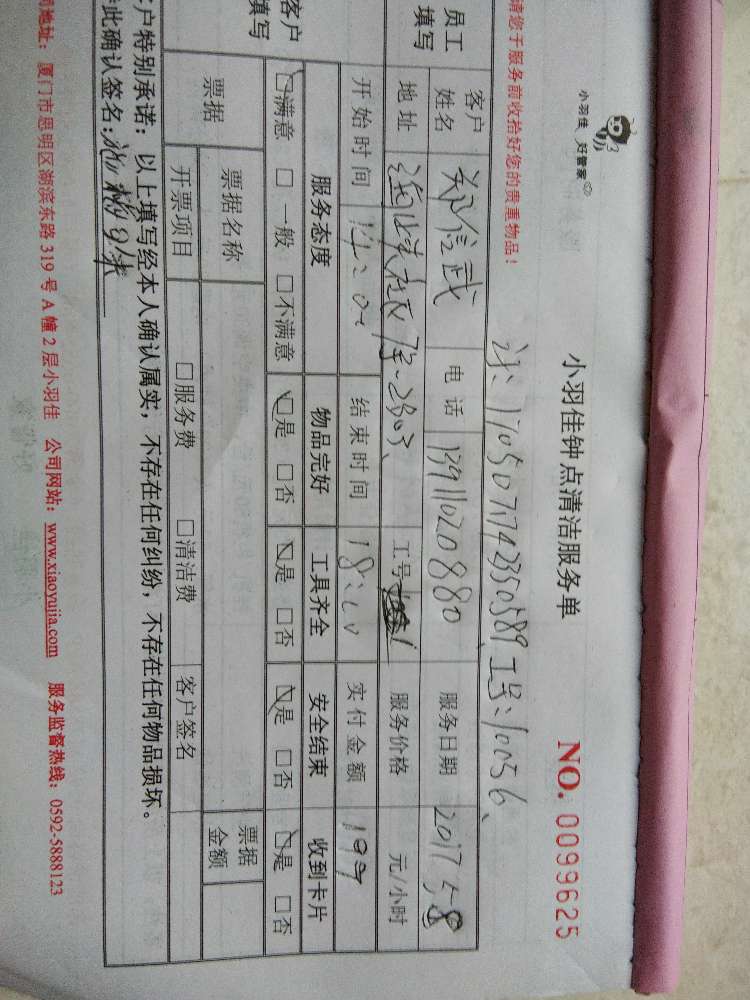 小羽佳 好管家
小羽佳钟点清洁服务单
NO. 0099625
请您于服务前收拾好您的贵重物品！
工号：10056、
员工填写
客户姓名
电话 13911020880
服务日期 2017 5 8
地址
2803、
工号
服务价格 元/小时
客户填写
开始时间
结束时间
实付金额 199
服务态度 物品完好 工具齐全 安全结束 收到卡片
□满意 □一般 □不满意 □是 □否 □是 □否 □是 □否 □是 □否
票据
票据名称
票据金额
开票项目 □服务费 □清洁费 客户签名
客户特别承诺：以上填写经本人确认属实；不存在任何纠纷，不存在任何物品损坏。
此确认签名：
地址：厦门市思明区湖滨东路 319 号 A 幢 2 层小羽佳 公司网站：www.xiaoyujia.com 服务监督热线：0592-5888123